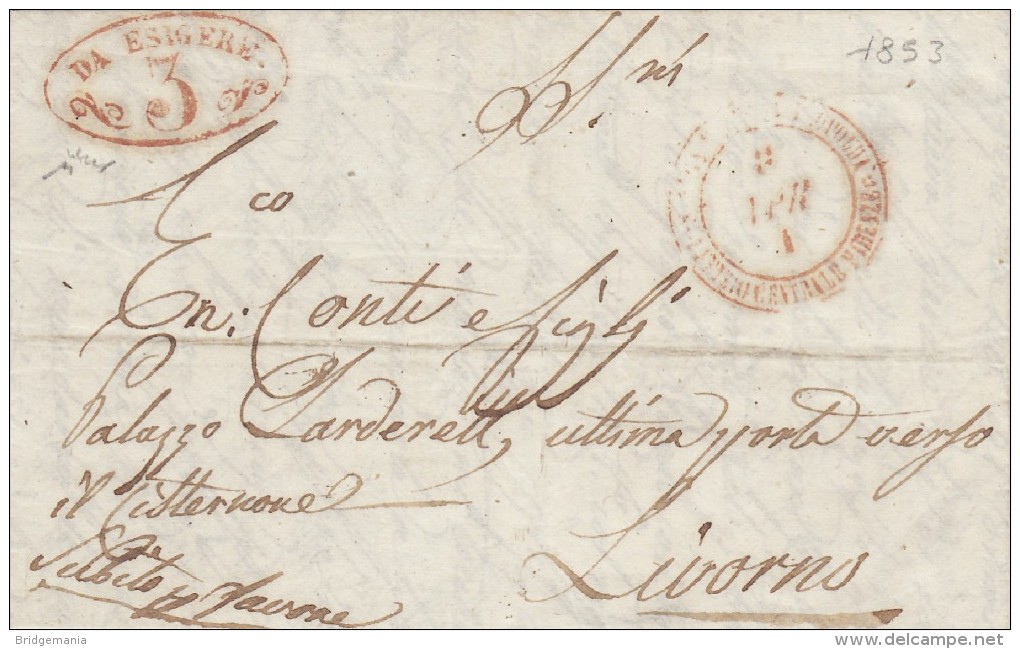 DA ESIGERE
3
1853
APR
CENTRALE
co
Conti e Figli
Palazzo Larderell, ultima porta verso
il Cisternone
Livorno
Subito
Bridgemania
delcampe.net